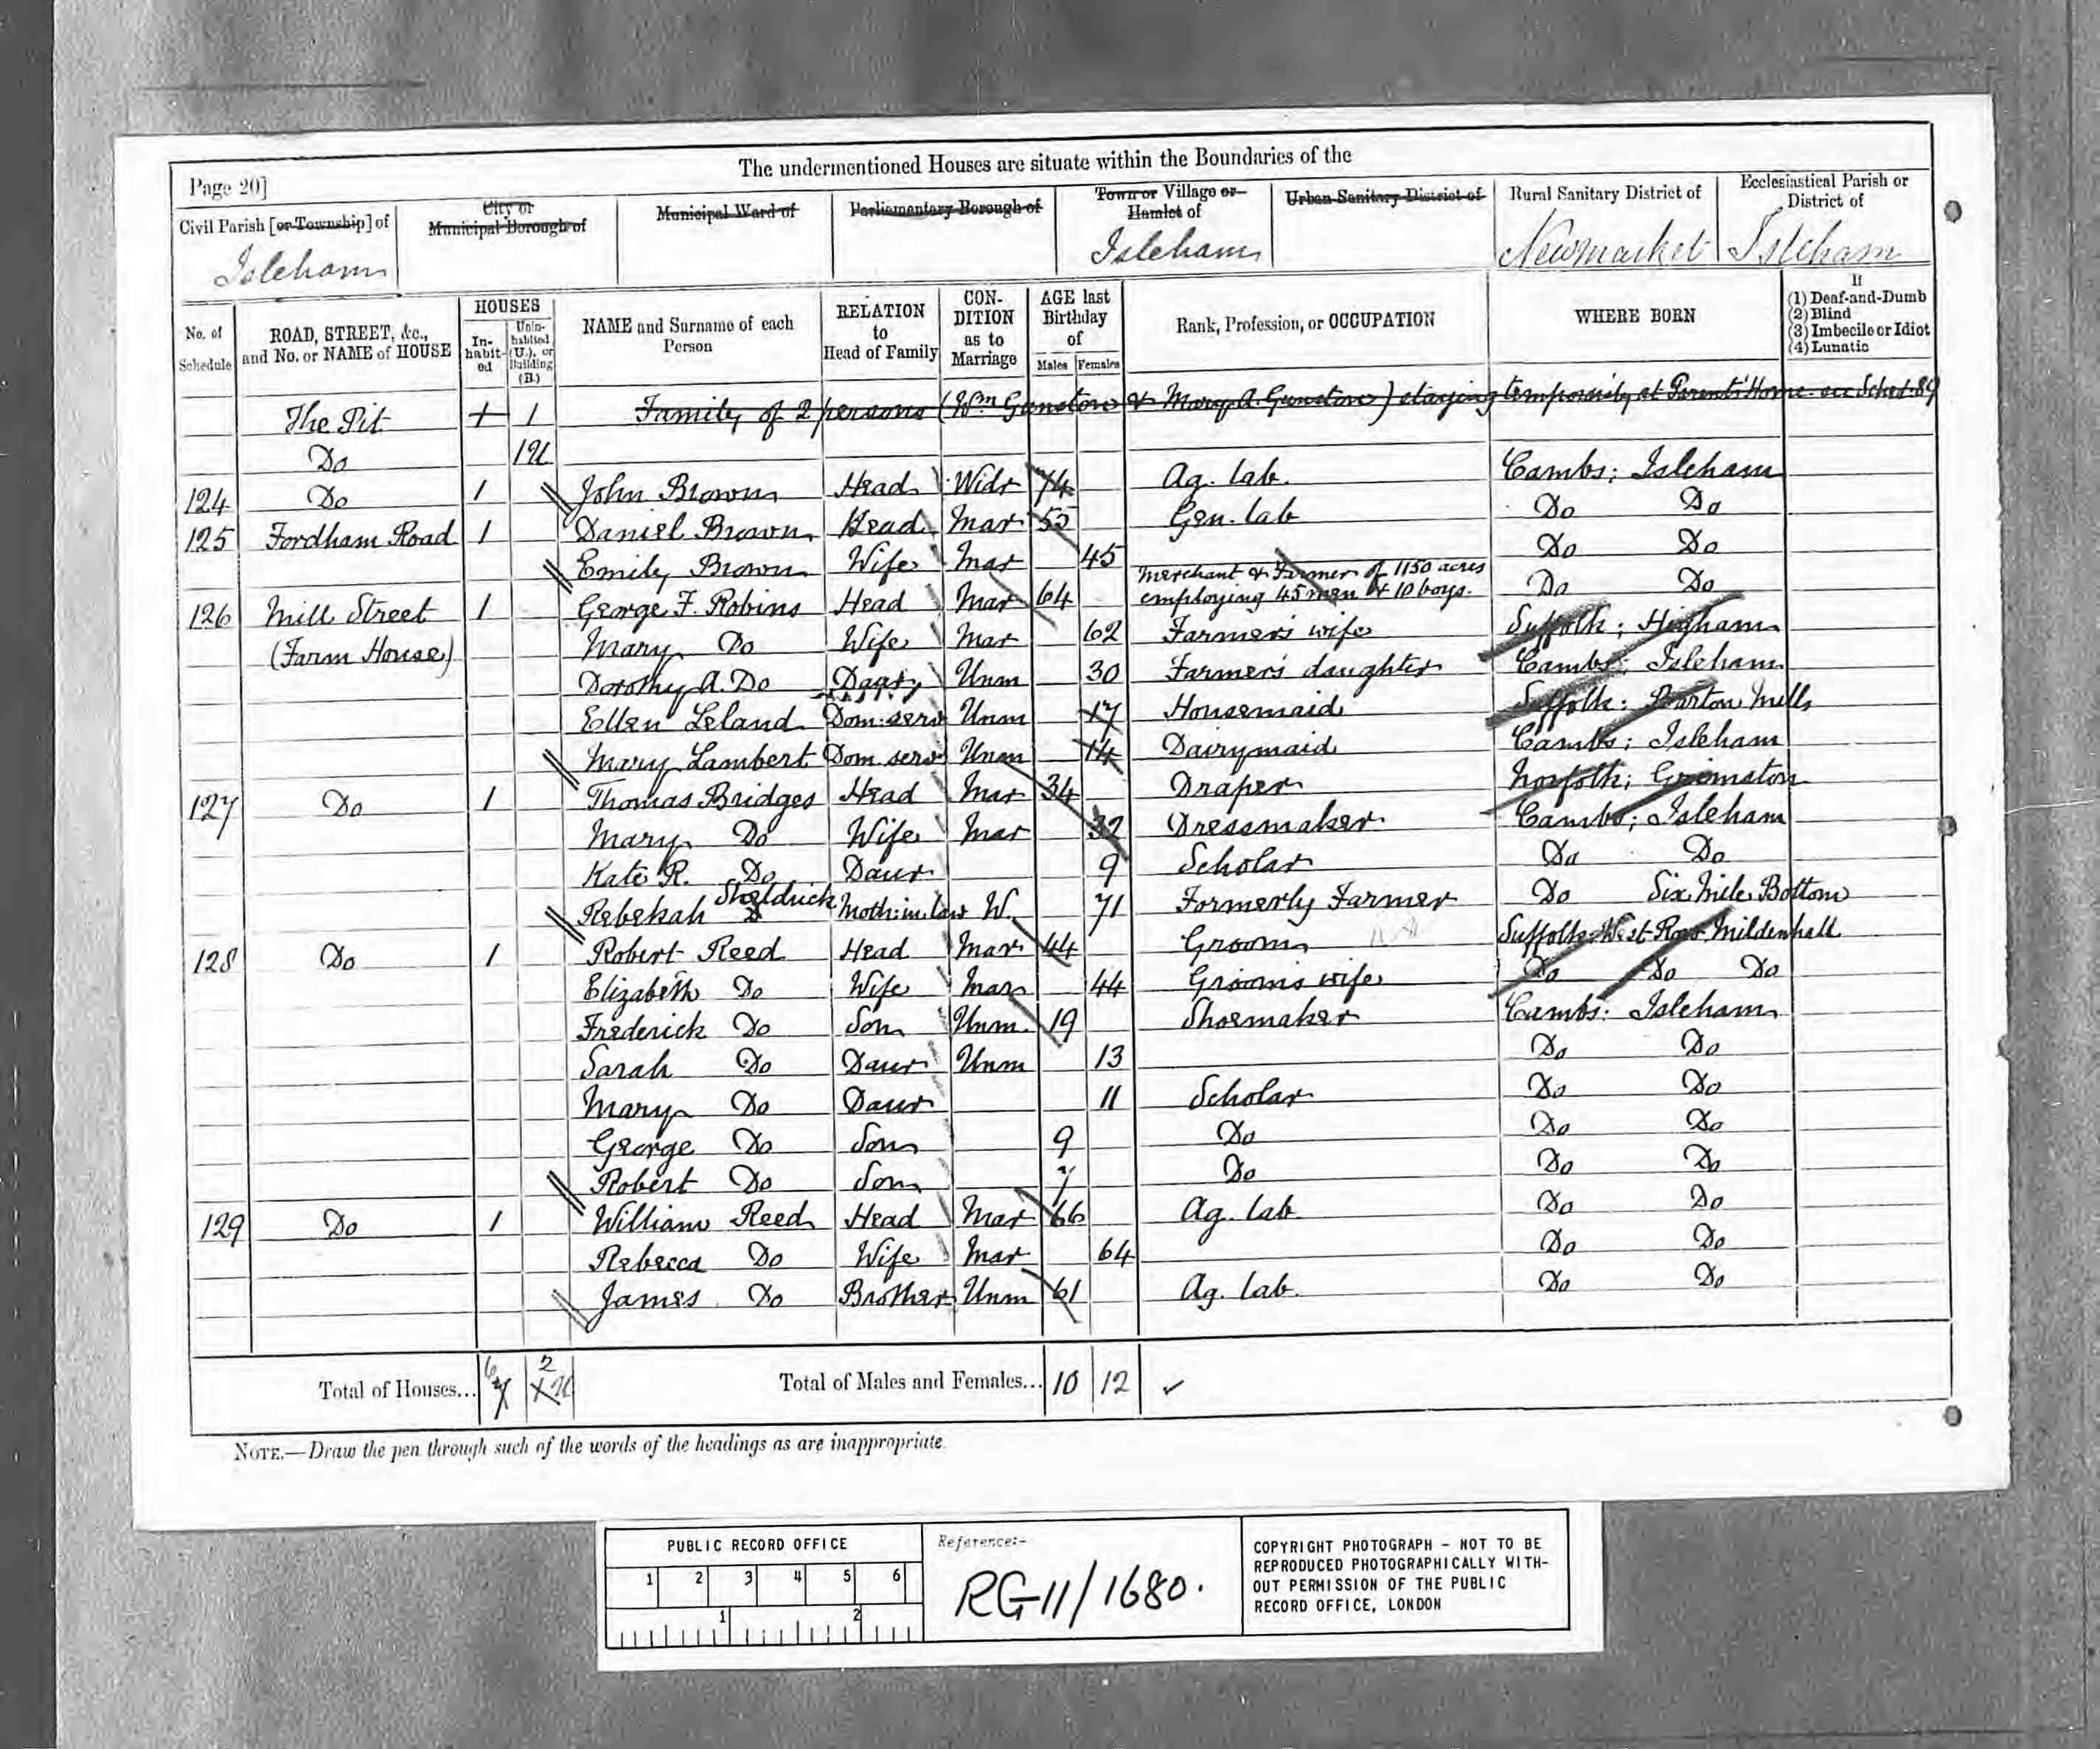 The undermentioned Houses are situate within the Boundaries of the
Page 20]
Civil Parish [or Township] of
City or Municipal Borough of
Municipal Ward of
Parliamentary Borough of
Town or Village or Hamlet of
Urban Sanitary District of
Rural Sanitary District of
Ecclesiastical Parish or District of
Isleham Isleham Newmarket Isleham
No. of Schedule
ROAD, STREET, &c., and No. or NAME of HOUSE
HOUSES
In-habit-ed
Unin-habited (U.), or Building (B.)
NAME and Surname of each Person
RELATION to Head of Family
CON-DITION as to Marriage
AGE last Birthday of
Males Females
Rank, Profession, or OCCUPATION
WHERE BORN
If
(1) Deaf-and-Dumb
(2) Blind
(3) Imbecile or Idiot
(4) Lunatic
The Pit 1 1 Family of 2 persons (Wm Gunstow & Mary A. Gunstow) staying temporarily at Parents' Home see Sched 89
Do 1U
124 Do 1 John Brown Head Widr 74 Ag. lab. Cambs; Isleham
125 Fordham Road 1 Daniel Brown Head Mar 55 Gen. lab Do Do
Emily Brown Wife Mar 45 Do Do
126 Mill Street 1 George F. Robins Head Mar 64 Merchant & Farmer of 1150 acres employing 45 men & 10 boys. Do Do
(Farm House) Mary Do Wife Mar 62 Farmer's wife Suffolk; Higham
Dorothy A. Do Daur Unm 30 Farmer's daughter Cambs; Isleham
Ellen Leland Dom: serv Unm 17 Housemaid Suffolk: Barton Mills
Mary Lambert Dom serv Unm 14 Dairymaid Cambs; Isleham
127 Do 1 Thomas Bridges Head Mar 34 Draper Norfolk; Grimston
Mary Do Wife Mar 32 Dressmaker Cambs; Isleham
Kate R. Do Daur 9 Scholar Do Do
Rebekah Sheldrick Moth: in law W. 71 Formerly Farmer Do Six Mile Bottom
128 Do 1 Robert Reed Head Mar 44 Groom Suffolk: West Row Mildenhall
Elizabeth Do Wife Mar 44 Groom's wife Do Do Do
Frederick Do Son Unm. 19 Shoemaker Cambs: Isleham
Sarah Do Daur Unm 13 Do Do
Mary Do Daur 11 Scholar Do Do
George Do Son 9 Do Do Do
Robert Do Son 7 Do Do Do
129 Do 1 William Reed Head Mar 66 Ag. lab. Do Do
Rebecca Do Wife Mar 64 Do Do
James Do Brother Unm 61 Ag. lab. Do Do
Total of Houses... 6 2 Total of Males and Females... 10 12
NOTE.—Draw the pen through such of the words of the headings as are inappropriate.
PUBLIC RECORD OFFICE
1 2 3 4 5 6
1 2
Reference:-
RG11/1680.
COPYRIGHT PHOTOGRAPH - NOT TO BE
REPRODUCED PHOTOGRAPHICALLY WITH-
OUT PERMISSION OF THE PUBLIC
RECORD OFFICE, LONDON